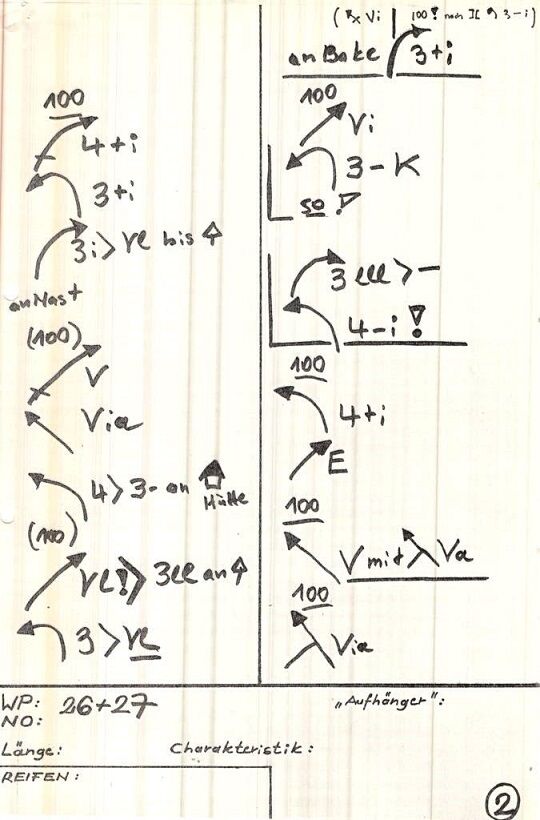 100
4+i
3+i
3i > Vl bis
an Mast
(100)
V
Via
4 > 3- an
Hütte
(100)
Vl! > 3ll an
3 > Vl
(Rx Vi
100! nach II 3-i)
an Bake
3+i
100
Vi
3-K
so!
3 lll > -
4-i!
100
4+i
E
100
V mit Va
100
Via
WP: 26+27
NO:
"Aufhänger":
Länge:
Charakteristik:
REIFEN:
2